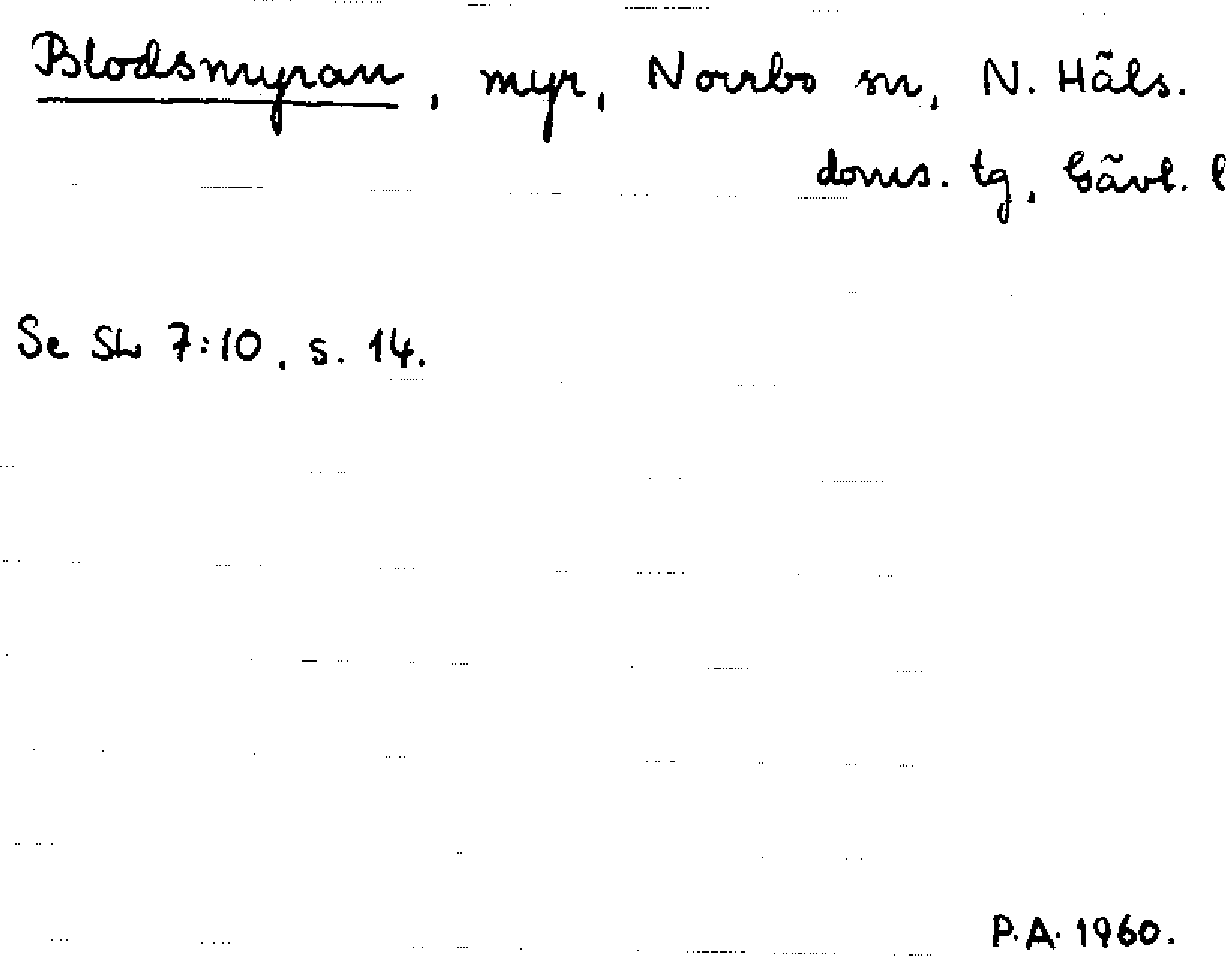 Blodsmyran, myr, Norrbo sn, N. Häls.
doms. tg, Gävl. l
Se Sh 7:10, s. 14.
P.A. 1960.